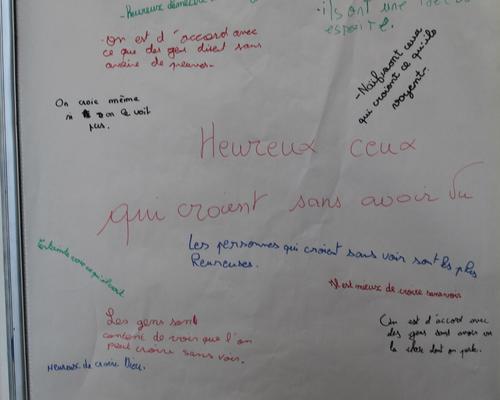 -heureux
·ils ont une
esprit.
-On est d'accord avec
ce que des gens disent sans
avoir de preuves-
-Naïfs sont ceux
qui croient ce qu'ils
voyent.
On croie même
si on le voit
pas.
Heureux ceux
qui croient sans avoir vu
Les personnes qui croient sans voir sont les plus
heureuses.
Il est mieux de croire sans voir
Les gens sont
content de voir que l'on
peut croire sans voir.
On est d'accord avec
des gens sont avoir vu
la chose dont on parle.
Heureux de croire Dieu.